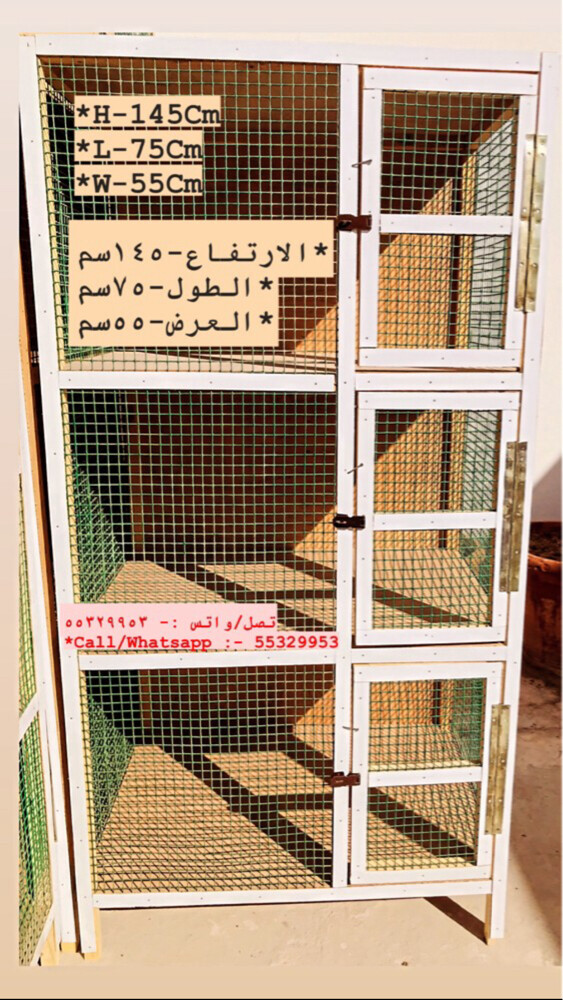 *H-145Cm
*L-75Cm
*W-55Cm
*الارتفاع-١٤٥سم
*الطول-٧٥سم
*العرض-٥٥سم
تصل/واتس :- ٥٥٣٢٩٩٥٣
*Call/Whatsapp :- 55329953